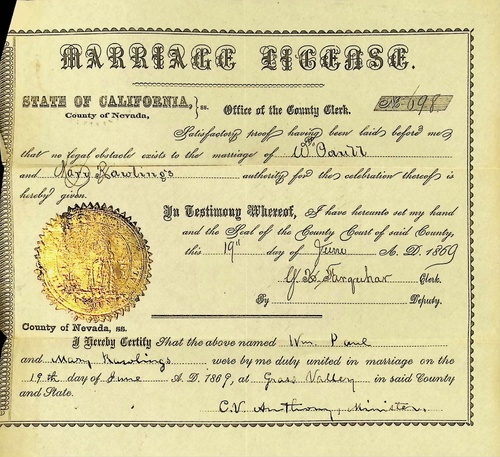 MARRIAGE LICENSE.
STATE OF CALIFORNIA, } ss. Office of the County Clerk.
County of Nevada,
Satisfactory proof having been laid before me
that no legal obstacle exists to the marriage of Wm
and Mary Rawlings authority for the celebration thereof is
hereby given.
In Testimony Whereof, I have hereunto set my hand
and the Seal of the County Court of said County,
this 19th day of June A. D. 1869
Farquhar Clerk.
By Deputy.
County of Nevada, ss.
I Hereby Certify that the above named Wm. Paul
and Mary Rawlings were by me duly united in marriage on the
19th day of June A. D. 1869, at Grass Valley in said County
and State.
C. V. Anthony, Minister.